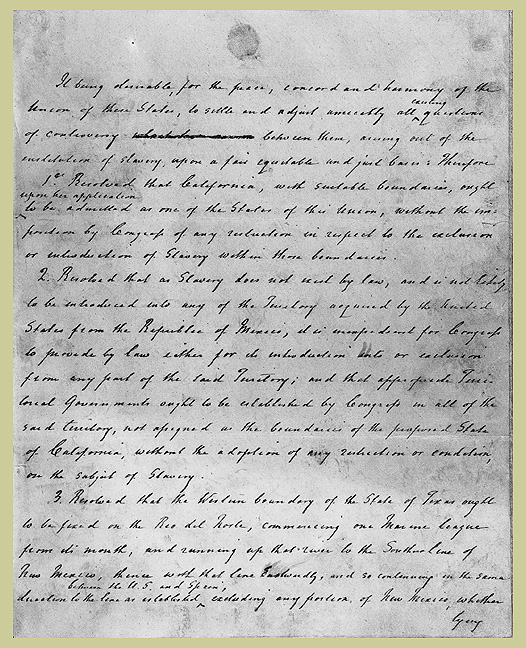 It being desirable, for the peace, concord and harmony of the
Union of these States, to settle and adjust amicably all existing questions
of controversy between them, arising out of the
institution of Slavery, upon a fair equitable and just basis: Therefore
1st Resolved that California, with suitable boundaries, ought
upon her application
to be admitted as one of the States of this Union, without the im-
position by Congress of any restriction in respect to the exclusion
or introduction of Slavery within those boundaries.
2. Resolved that as Slavery does not exist by law, and is not likely
to be introduced into any of the Territory acquired by the United
States from the Republic of Mexico, it is inexpedient for Congress
to provide by law either for its introduction into or exclusion
from any part of the said Territory; and that appropriate Terri-
torial Governments ought to be established by Congress in all of the
said territory, not assigned as the boundaries of the proposed State
of California, without the adoption of any restriction or condition,
on the subject of Slavery.
3. Resolved that the Western boundary of the State of Texas ought
to be fixed on the Rio del Norte, commencing one Marine league
from its mouth, and running up that river to the Southern line of
New Mexico, thence with that line Eastwardly, and so continuing in the same
between the U.S. and Spain,
direction to the line as established excluding any portion of New Mexico, whether
lying